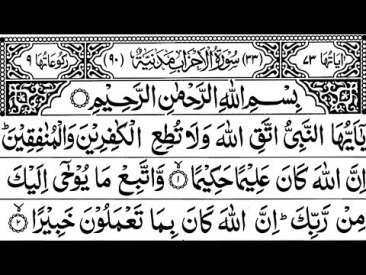 اٰیاتُهَا ٧٣ (٣٣) سُوْرَةُ الْاَحْزَابِ مَدَنِیَّةٌ (٩٠) رُكُوْعَاتُهَا ٩
بِسْمِ اللّٰهِ الرَّحْمٰنِ الرَّحِیْمِ
یٰۤاَیُّهَا النَّبِیُّ اتَّقِ اللّٰهَ وَلَا تُطِعِ الْكٰفِرِیْنَ وَالْمُنٰفِقِیْنَ ؕ
اِنَّ اللّٰهَ كَانَ عَلِیْمًا حَكِیْمًا ۙ ١ وَّاتَّبِعْ مَا یُوْحٰۤی اِلَیْكَ
مِنْ رَّبِّكَ ؕ اِنَّ اللّٰهَ كَانَ بِمَا تَعْمَلُوْنَ خَبِیْرًا ۙ ٢